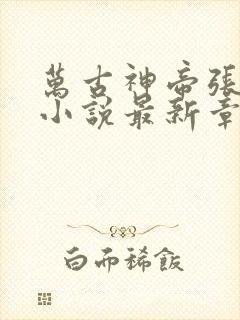 萬古神帝張
小說最新章
白而稀飯